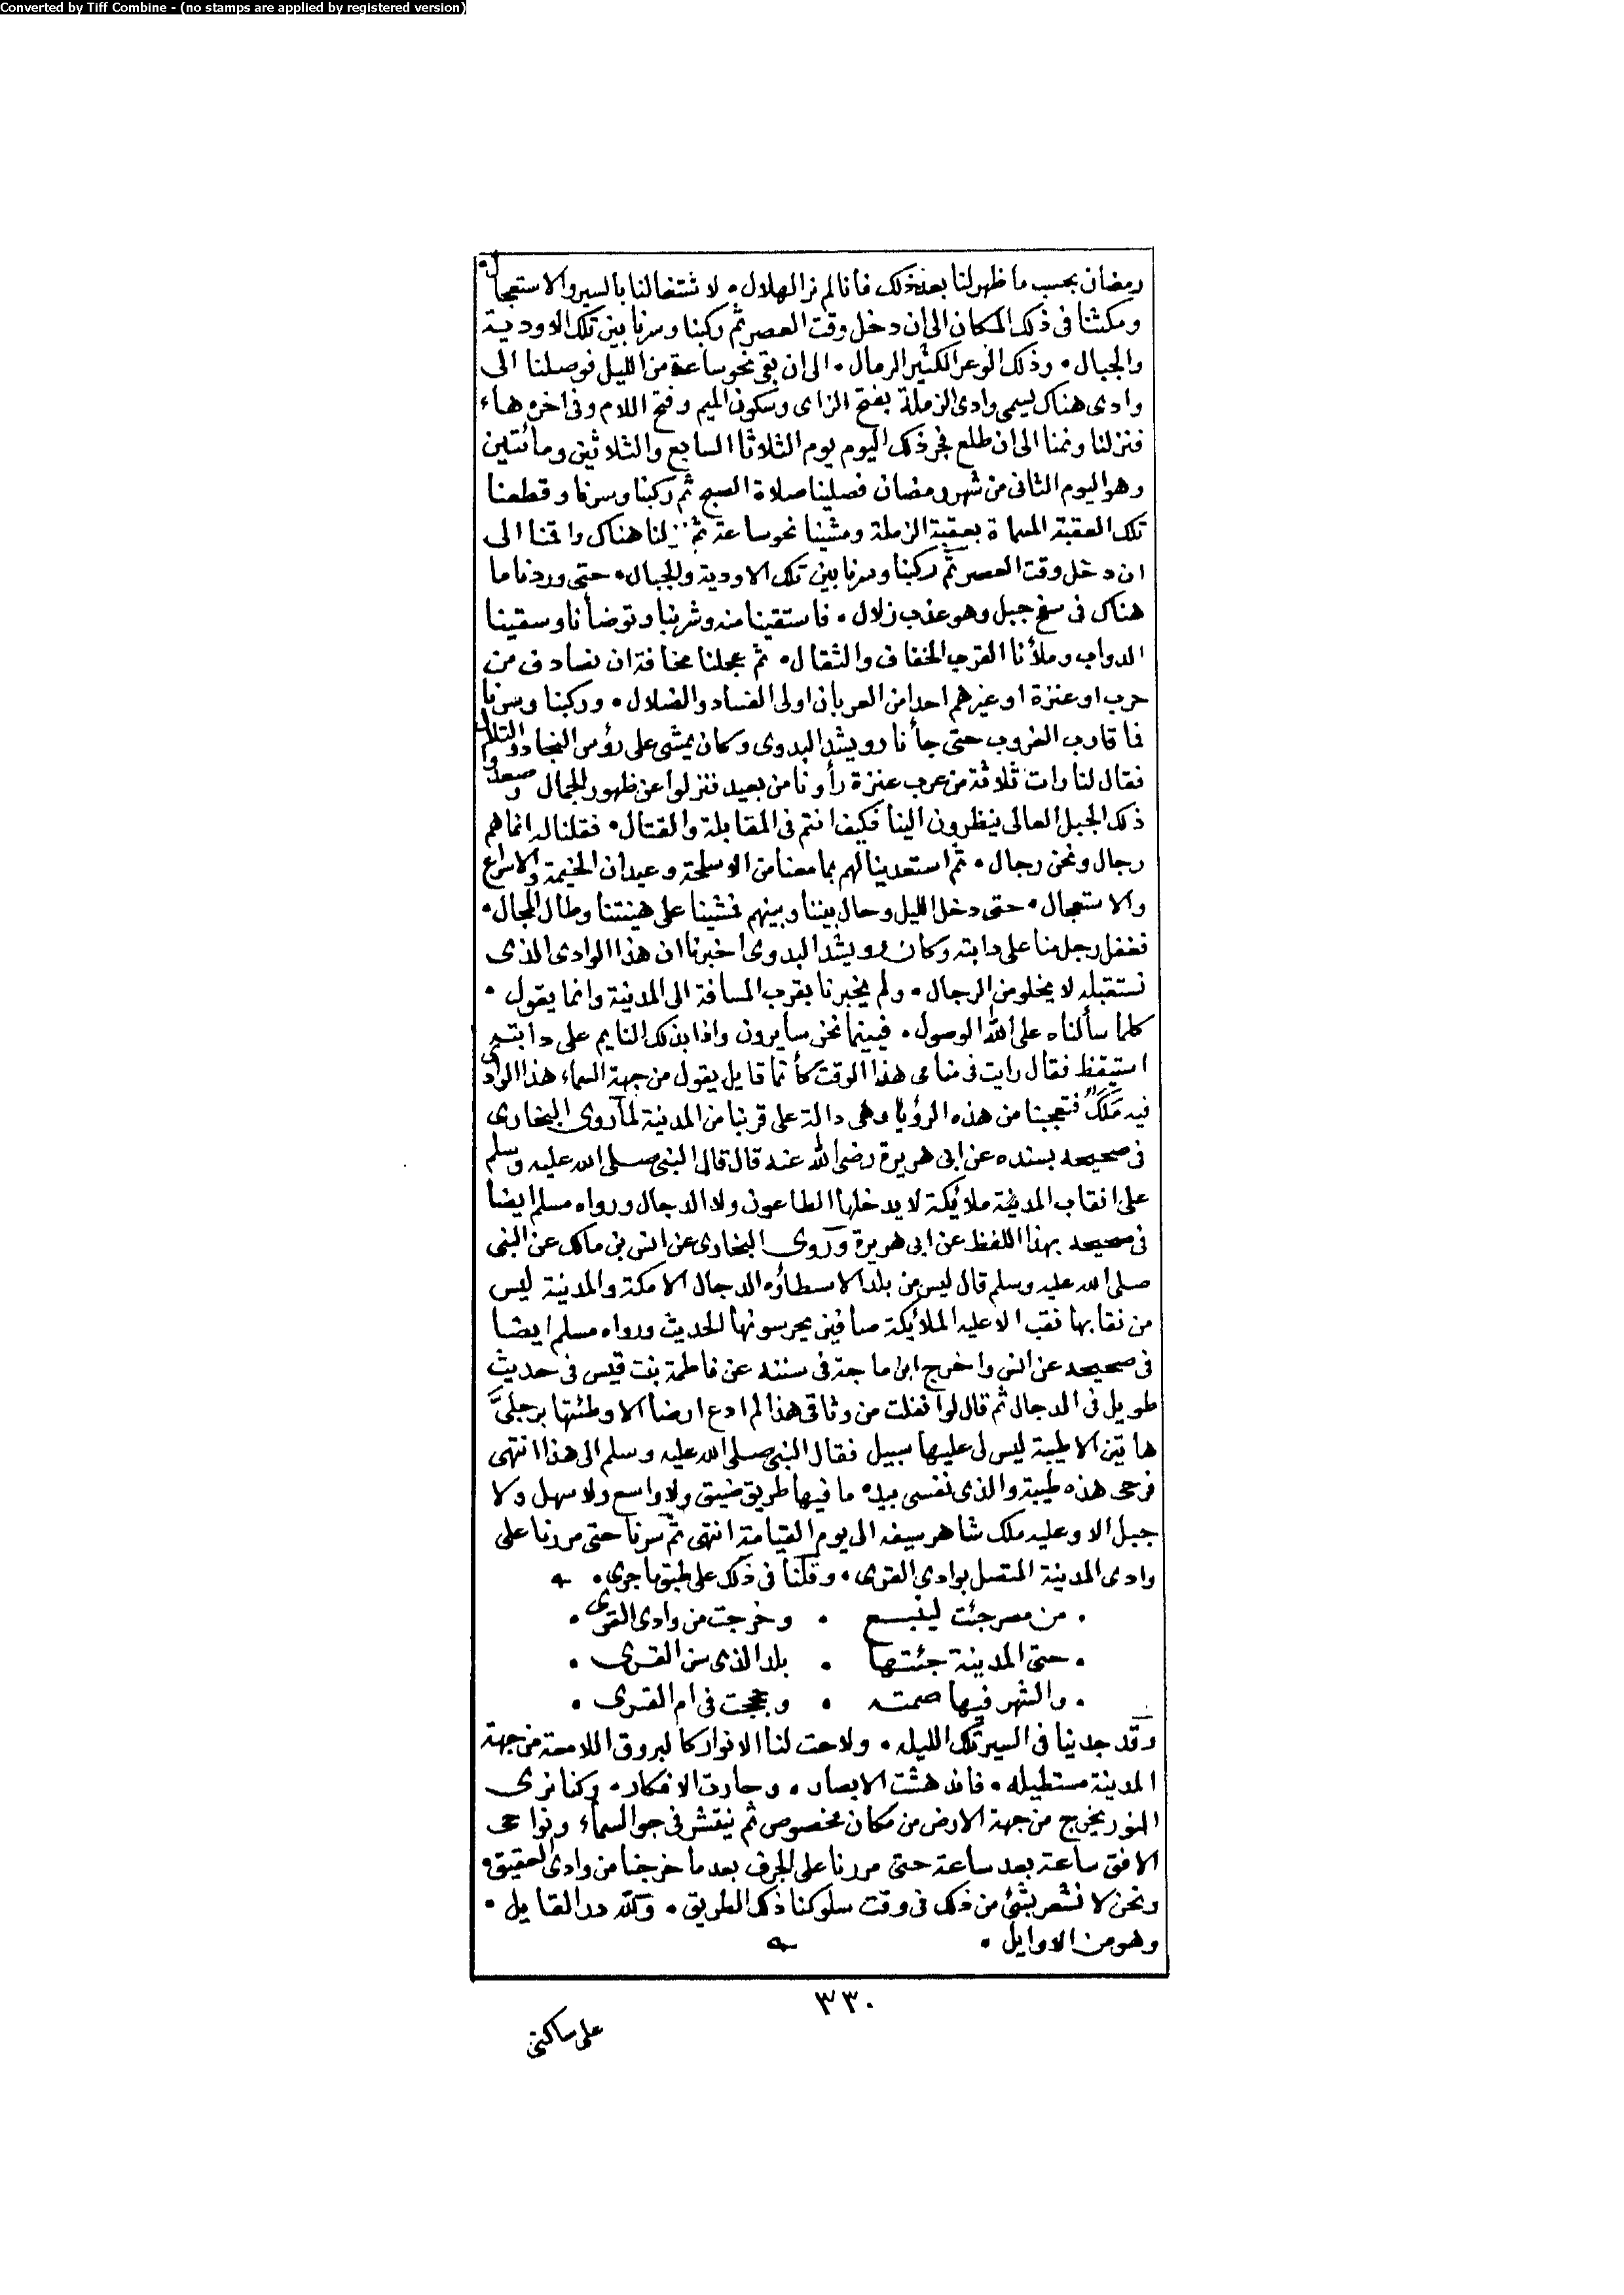 Converted by Tiff Combine - (no stamps are applied by registered version)
رمضان بحسب ما ظهر لنا بعد ذلك فأنا لم نر الهلال • لاشتغالنا بالسير والاستعجال •
ومكثنا فى ذلك المكان الى ان دخل وقت العصر ثم ركبنا وسرنا بين تلك الاودية
والجبال • وذلك الوعر الكثير الرمال • الى ان بقى نحو ساعة من الليل فوصلنا الى
وادى هناك يسمى وادى الزملة بفتح الزاى وسكون الميم وفتح اللام وفى اخره هاء
فنزلنا ونمنا الى ان طلع فجر ذلك اليوم يوم الثلاثا السابع والثلاثين ومائتين
وهو اليوم الثانى من شهر رمضان فصلينا صلاة الصبح ثم ركبنا وسرنا وقطعنا
تلك العقبة المسماة بعقبة الزملة ومشينا نحو ساعة ثم نزلنا هناك واقمنا الى
ان دخل وقت العصر ثم ركبنا وسرنا بين تلك الاودية والجبال • حتى وردنا ما
هناك فى سفح جبل وهو عذب زلال • فاستقينا منه وشربنا وتوضأنا وسقينا
الدواب وملأنا القرب الخفاف والثقال • ثم عجلنا مخافة ان نصادف من
حرب او عنزة او غيرهم احدا من العربان اولى الفساد والضلال • وركبنا وسرنا
فما قارب الغروب حتى جأنا رويشد البدوى وكان يمشى على رؤس النجاد والتلال
فقال لنا رات ثلاثة من عرب عنزة رأونا من بعيد فنزلوا عن ظهور الجمال وصعدوا
ذلك الجبل العالى ينظرون الينا فكيف انتم فى المقابلة والقتال • فقلنا له انما هم
رجال ونحن رجال • ثم استعدينا لهم بما معنا من الاسلحة وعيدان الخيمة والاسراع
والاستعجال • حتى دخل الليل وحال بيننا وبينهم فمشينا على هينتنا وطال المجال •
فغفل رجل منا على دابته وكان رويشد البدوى اخبرنا ان هذا الوادى الذى
نستقبله لا يخلو من الرجال • ولم يخبرنا بقرب المسافة الى المدينة وانما يقول •
كلما سألناه على الله الوصول • فبينما نحن سايرون واذا بذلك النايم على دابته
استيقظ فقال رايت فى منامى هذا الوقت كأنما قايل يقول من جهة السماء هذا الوادى
فيه مَلَكٌ فتعجبنا من هذه الرؤيا وهى دالة على قربنا من المدينة لما روى البخارى
فى صحيحه بسنده عن ابى هريرة رضى الله عنه قال قال النبى صلى الله عليه وسلم
على انقاب المدينة ملائكة لا يدخلها الطاعون ولا الدجال ورواه مسلم ايضا
فى صحيحه بهذا اللفظ عن ابى هريرة وروى البخارى عن انس بن مالك عن النبى
صلى الله عليه وسلم قال ليس من بلد الا سيطاؤه الدجال الا مكة والمدينة ليس
من نقابها نقب الا عليه الملائكة صافين يحرسونها الحديث ورواه مسلم ايضا
فى صحيحه عن انس واخرج ابن ماجة فى سننه عن فاطمة بنت قيس فى حديث
طويل فى الدجال ثم قال لو انفلت من وثاقى هذا لم ادع ارضا الا وطئتها برجلىَّ
هاتين الا طيبة ليس لى عليها سبيل فقال النبى صلى الله عليه وسلم الى هذا انتهى
فرحى هذه طيبة والذى نفسى بيده ما فيها طريق ضيق ولا واسع ولا سهل ولا
جبل الا وعليه ملك شاهر سيفه الى يوم القيامة انتهى ثم سرنا حتى مررنا على
وادى المدينة المتصل بوادى القرى • وقلنا فى ذلك على طبق ما جرى •
• من مصر جئت لينبع • وخرجت من وادى القرى •
• حتى المدينة جئتها • بلد الذى سن القرى •
• والشهر فيها صمته • وحججت فى ام القرى •
وقد جدينا فى السير تلك الليله • ولاحت لنا الانوار كالبروق اللامعة من جهة
المدينة مستطيله • فاندهشت الابصار • وحارت الافكار • وكنا نرى
النور يخرج من جهة الارض من مكان مخصوص ثم ينتشر فى جو السماء ونواحى
الافق ساعة بعد ساعة حتى مررنا على الجرف بعد ما خرجنا من وادى العقيق •
ونحن لا نشعر بشئ من ذلك فى وقت سلوكنا ذلك الطريق • ولله در القايل •
وهو من الاوايل •
٣٣٠
على ساكنى